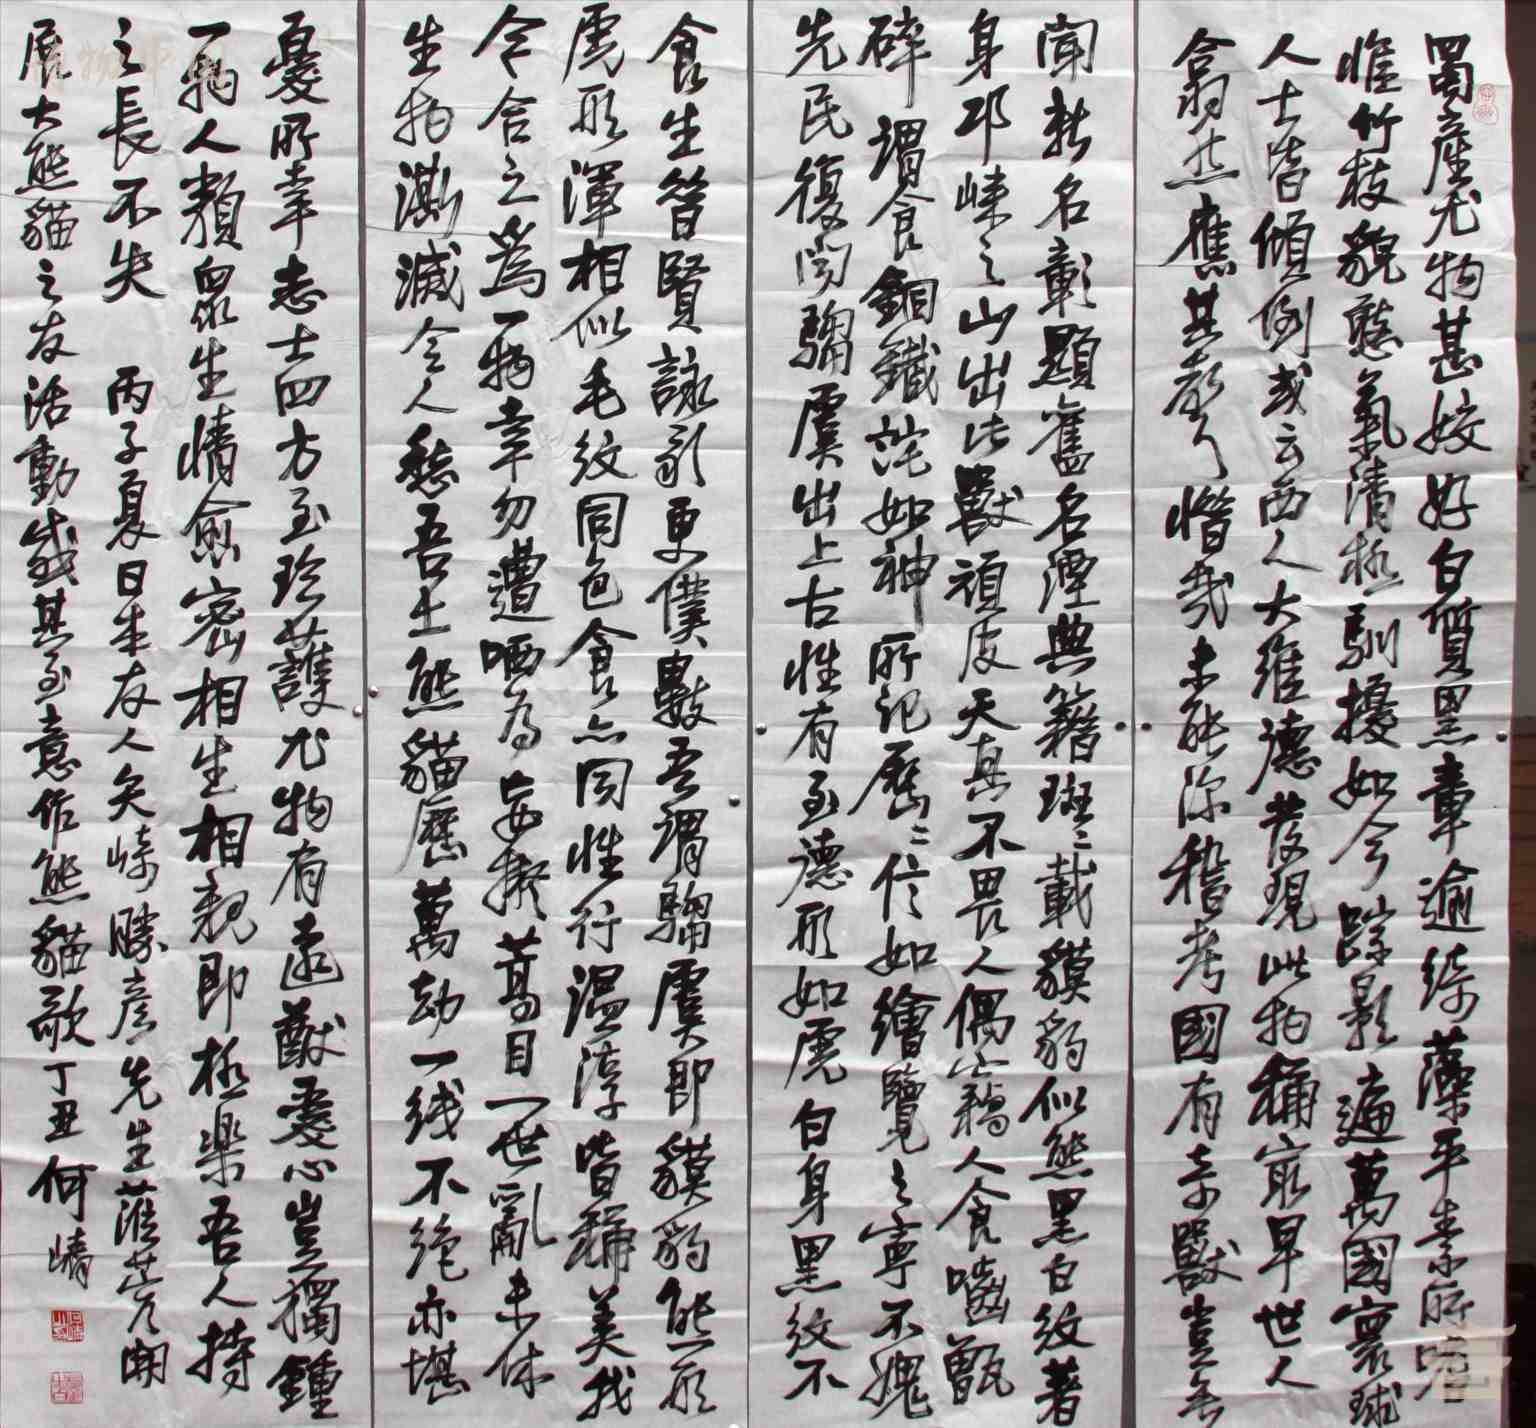 蜀產尤物甚姣好白質黑章逾綺藻平素所嗜
惟竹枝貌憨氣清極馴擾如今蹤影遍萬國寰球
人士皆傾倒或云西人大維德發現此物稱最早世人
翕然應其聲惜哉未能深稽考國有奇獸豈無
聞新名彰顯舊名湮典籍斑斑載貘豹似熊黑白紋著
身邛崍之山出此獸頑皮天真不畏人偶竊人食嚙甑
碎謂食銅鐵詫如神所記歷歷信如繪覽之寧不愧
先民復閱騶虞出上古性有至德形如虎白身黑紋不
食生昔賢詠歌更僕數吾謂騶虞即貘豹熊形
虎形渾相似毛紋同色食亦同性行溫淳皆稱美我
今合之為一物幸勿遭哂為妄擬蒿目一世亂未休
生物澌滅令人愁吾土熊貓歷萬劫一线不絕亦堪
憂所幸志士四方至珍護尤物有遠猷愛心豈獨鍾
一物人類眾生情愈密相生相親即極樂吾人持
之長不失 丙子夏日生友人矢崎勝彥先生蒞蓉開
展大熊貓之友活動感其至意作熊貓歌丁丑何崝